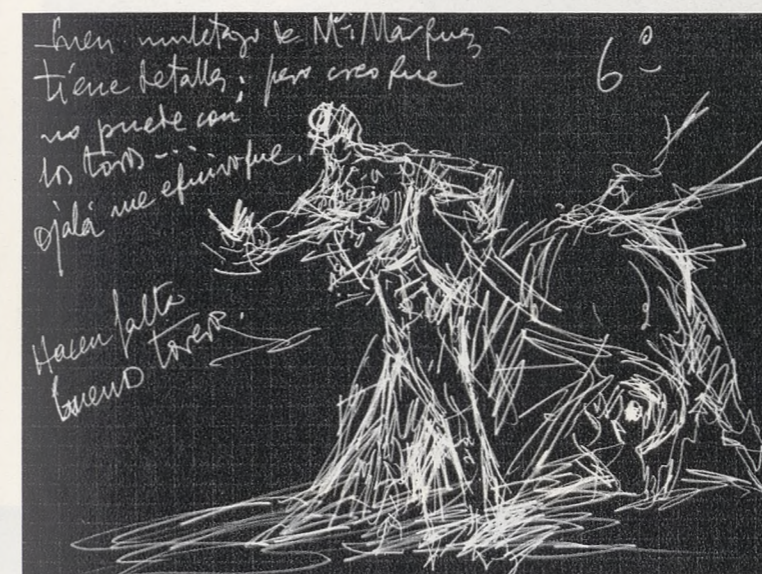 buen muletazo de Ml. Márquez -
tiene detalles; pero creo que
no puede con
los toros ...
ojalá me equivoque.
6º
Hacen falta
buenos toreros.